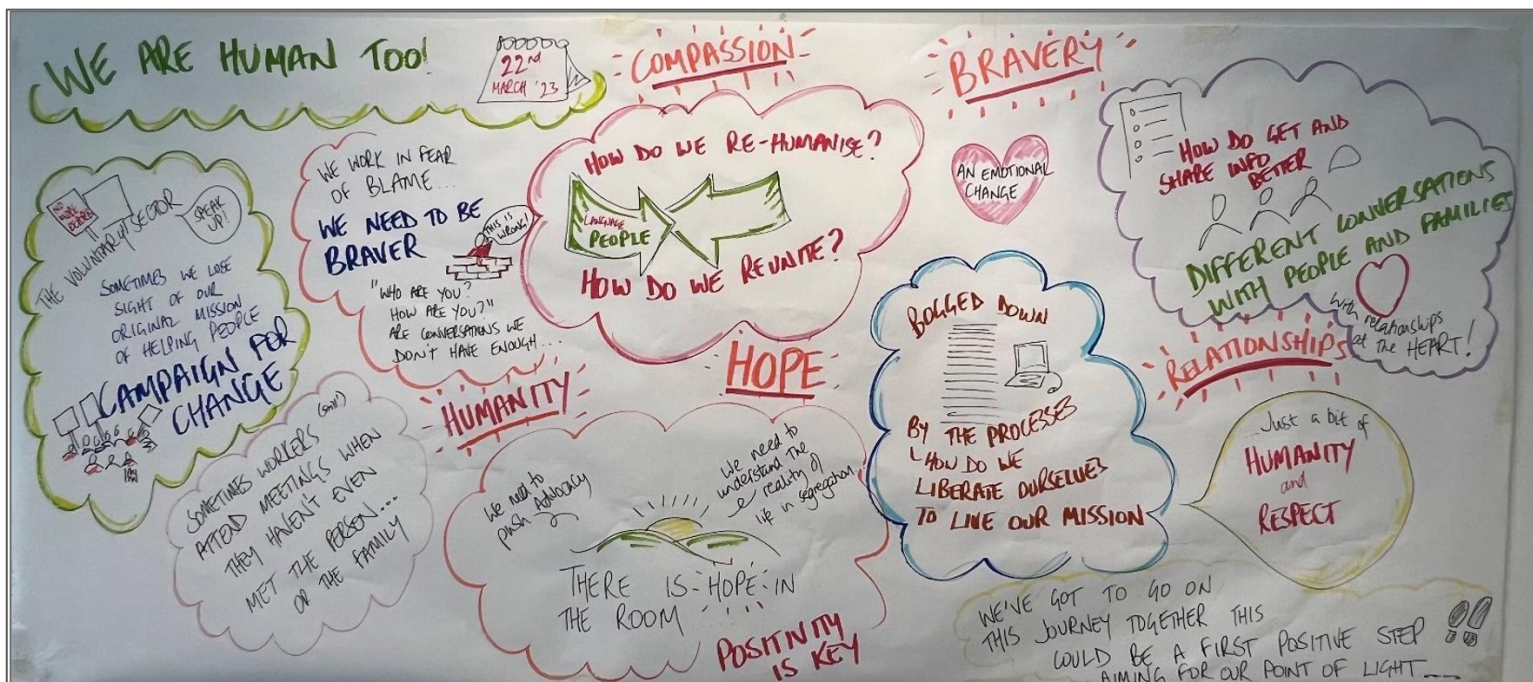 WE ARE HUMAN TOO!
22nd
MARCH '23
COMPASSION
BRAVERY
NO MORE
THE VOLUNTARY SECTOR
SPEAK
UP!
SOMETIMES WE LOSE
SIGHT OF OUR
ORIGINAL MISSION
OF HELPING PEOPLE
CAMPAIGN FOR
CHANGE
WE WORK IN FEAR
OF BLAME...
WE NEED TO BE
BRAVER
THIS IS
WRONG!
"WHO ARE YOU?
HOW ARE YOU?"
ARE CONVERSATIONS WE
DON'T HAVE ENOUGH...
HOW DO WE RE-HUMANISE?
LANGUAGE
PEOPLE
HOW DO WE REUNITE?
AN EMOTIONAL
CHANGE
HOW DO GET AND
SHARE INFO
BETTER
DIFFERENT CONVERSATIONS
WITH PEOPLE AND FAMILIES
with relationships
at the HEART!
HUMANITY
HOPE
RELATIONSHIPS
SOMETIMES WORKERS (still!)
ATTEND MEETINGS WHEN
THEY HAVEN'T EVEN
MET THE PERSON...
OR THE FAMILY
We need to
push Advocacy
We need to
understand the
reality of
life in segregation
THERE IS HOPE IN
THE ROOM
POSITIVITY
IS KEY
BOGGED DOWN
BY THE PROCESSES
HOW DO WE
LIBERATE OURSELVES
TO LIVE OUR MISSION
...Just a bit of
HUMANITY
and
RESPECT
WE'VE GOT TO GO ON
THIS JOURNEY TOGETHER THIS
COULD BE A FIRST POSITIVE STEP
AIMING FOR OUR POINT OF LIGHT...